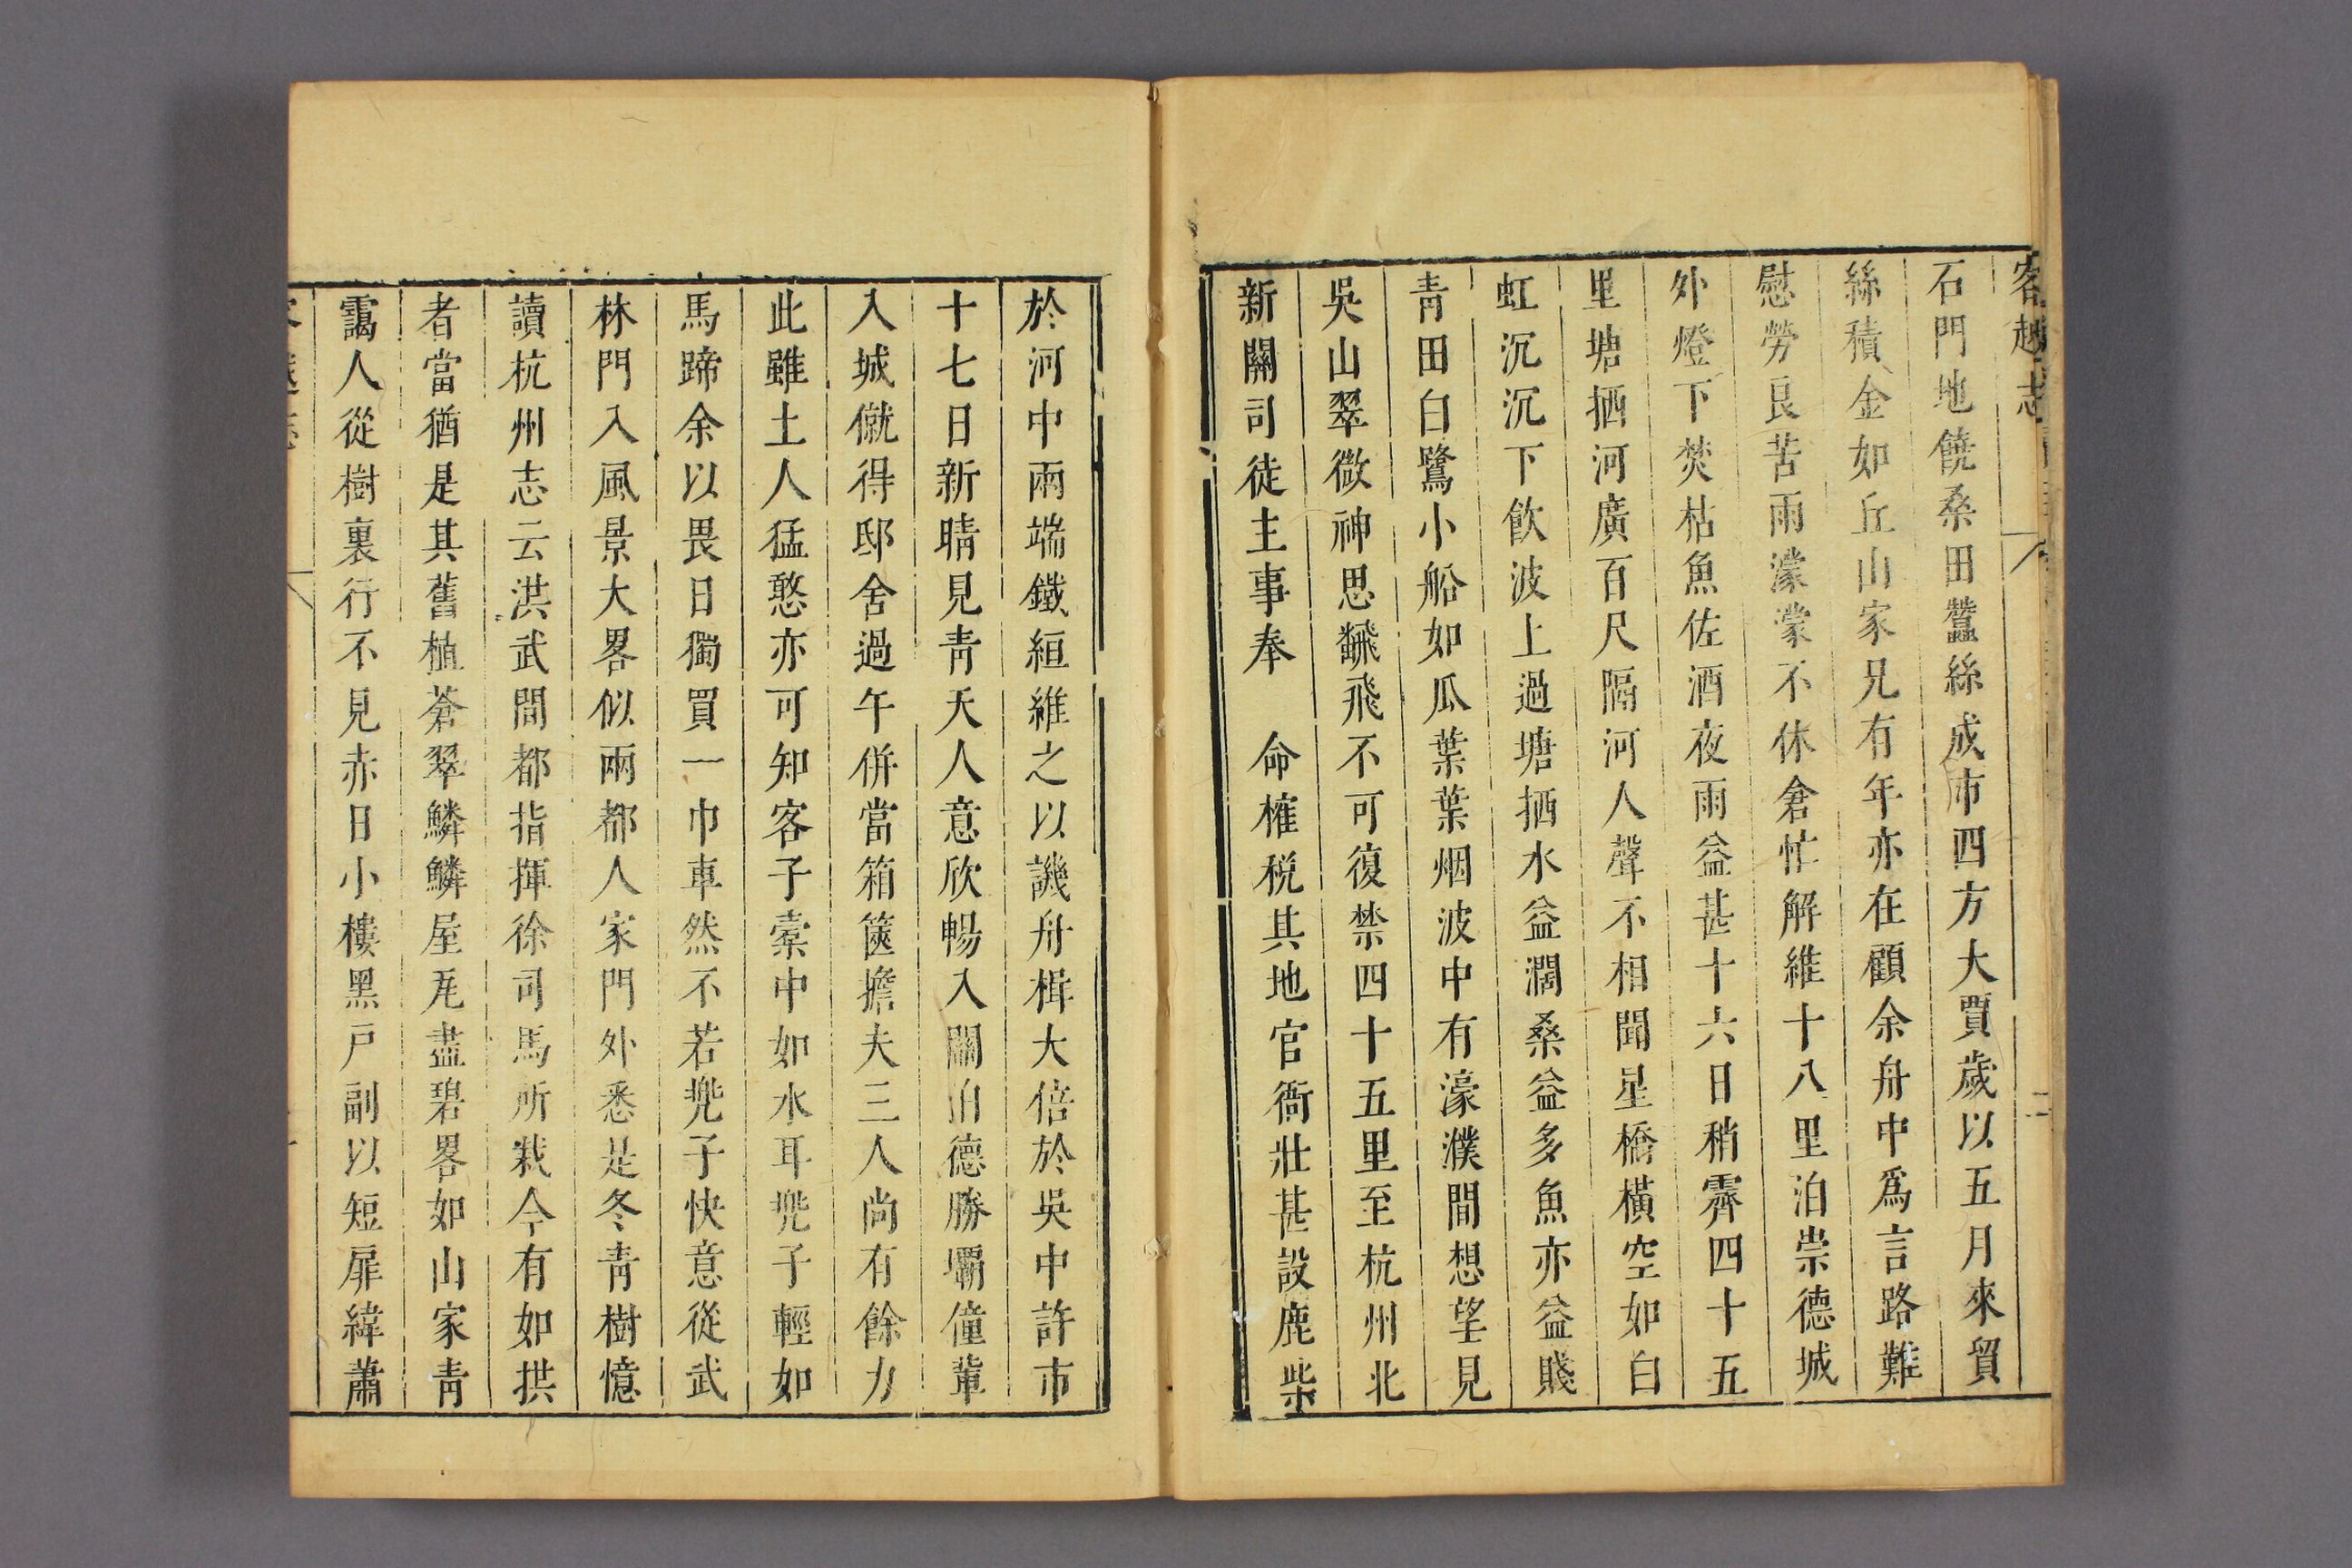 客越志
石門地饒桑田蠶絲成市四方大賈歲以五月來貿
絲積金如丘山家兄有年亦在顧余舟中爲言路難
慰勞良苦雨濛濛不休倉忙解維十八里泊崇德城
外燈下焚枯魚佐酒夜雨益甚十六日稍霽四十五
里塘栖河廣百尺隔河人聲不相聞星橋橫空如白
虹沉沉下飲波上過塘栖水益濶桑益多魚亦益賤
青田白鷺小船如瓜葉葉烟波中有濠濮間想望見
吳山翠微神思飜飛不可復禁四十五里至杭州北
新關司徒主事奉　命榷税其地官衙壯甚設鹿柴
於河中兩端鐵絙維之以譏舟楫大倍於吳中許市
十七日新晴見青天人意欣暢入關泊德勝壩僮輩
入城僦得邸舍過午併當箱篋擔夫三人尚有餘力
此雖土人猛憨亦可知客子槖中如水耳兠子輕如
馬蹄余以畏日獨買一巾車然不若兠子快意從武
林門入風景大畧似兩都人家門外悉是冬青樹憶
讀杭州志云洪武間都指揮徐司馬所栽今有如拱
者當猶是其舊植蒼翠鱗鱗屋瓦盡碧畧如山家青
靄人從樹裏行不見赤日小樓黑戸副以短扉緯蕭